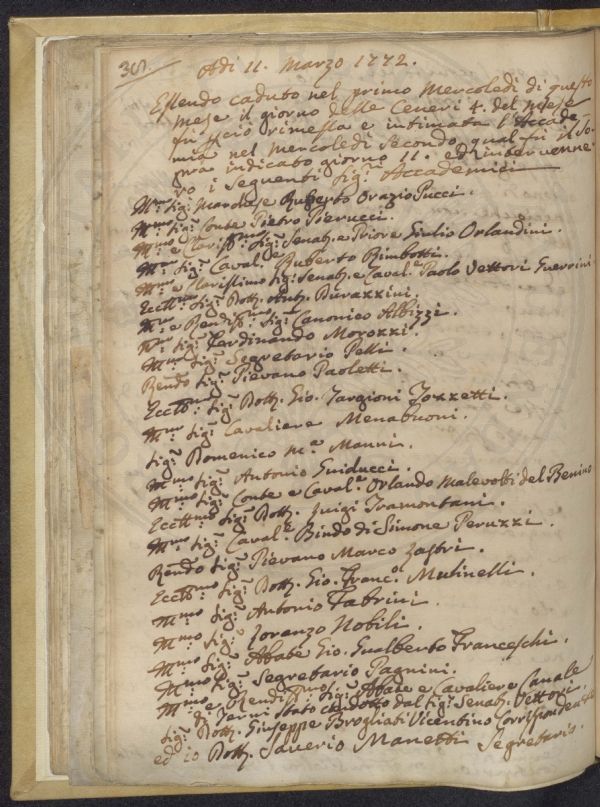 301.
Adi 11. Marzo 1772.
Essendo caduto nel primo Mercoledì di questo
mese il giorno delle Ceneri 4. del mese
fu rimessa e intimata l'Accade-
mia nel Mercoledì Secondo qual fu il so-
pra indicato giorno 11. ed interven̄e
ro i Seguenti Sig.ri Accademici
Ill.mo Sig.r Marchese Ruberto Orazio Pucci.
Ill.mo Sig.r Conte Pietro Pierucci.
Ill.mo e Clariss.mo Sig.r Senat.e e Priore Giulio Orlandini.
Ill.mo Sig.r Caval.e Ruberto Bimbotti.
Ill.mo e Clarissimo Sig.r Senat.e e Caval.e Paolo Vettori Guerrini
Eccll.mo Sig.r Dott. Ant.o Durazzini.
Ill.mo e Rendiss.mo Sig.r Canonico Albizzi.
Ill.mo Sig.r Ferdinando Morozzi.
Ill.mo Sig.r Segretario Pelli.
Rendo Sig.r Pievano Paoletti.
Eccll.mo Sig.r Dott. Gio. Targioni Tozzetti.
Ill.mo Sig.r Cavaliere Menabuoni.
Sig.r Domenico M.a Manni.
Ill.mo Sig.r Antonio Guiducci.
Ill.mo Sig.r Conte e Caval.e Orlando Malevolti del Benino
Eccll.mo Sig.r Dott. Luigi Tramontani.
Ill.mo Sig.r Caval.e Bindo di Simone Peruzzi.
Rendo Sig.r Pievano Marco Lastri.
Eccll.mo Sig.r Dott. Gio. Franc.o Mutinelli.
Ill.mo Sig.r Antonio Fabrini.
Ill.mo Sig.r Lorenzo Nobili.
Ill.mo Sig.r Abate Gio. Gualberto Franceschi.
Ill.mo Sig.r Segretario Pagnini.
Ill.mo e Rendiss.mo Sig.r Abate e Cavaliere Canale
di Terni stato condotto dal Sig.r Senat. Vettori.
Sig.r Dott. Giuseppe Brogliati Vicentino Corrispondente
ed io Dott. Saverio Manetti Segretario.